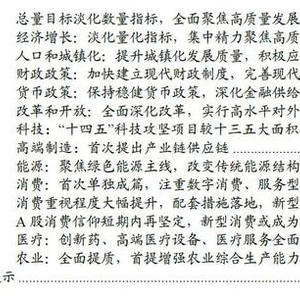 总量目标淡化数量指标，全面聚焦高质量发展
经济增长：淡化量化指标，集中精力聚焦高质
人口和城镇化：提升城镇化发展质量，积极应
财政政策：加快建立现代财政制度，完善现代
货币政策：保持稳健货币政策，深化金融供给
改革和开放：全面深化改革，实行高水平对外
科技：“十四五”科技攻坚项目较十三五大面积
高端制造：首次提出产业链供应链
能源：聚焦绿色能源主线，改变传统能源结构
消费：首次单独成篇，注重数字消费、服务型
消费重视程度大幅提升，配套措施落地，新型
A 股消费信仰短期内再坚定，新型消费或成为
医疗：创新药、高端医疗设备、医疗服务全面
农业：全面提质，首提增强农业综合生产能力
示